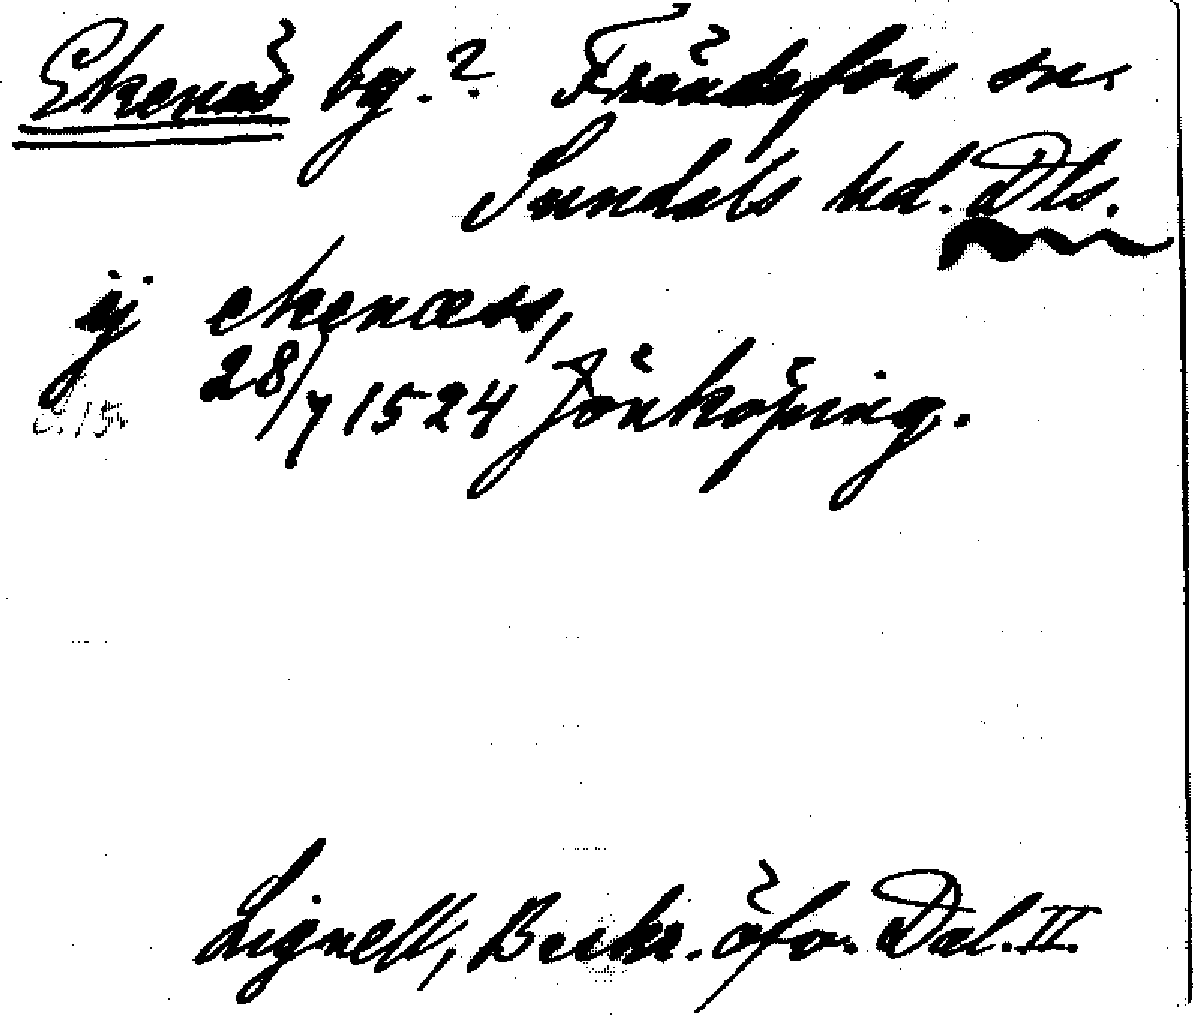 Ekenäs by.? Frändefors sn.
Sundals hd. Dls.
ij ekenæss,
28/7 1524 Jönköping.
Lignell, Beskr. öfv. Dal. II.